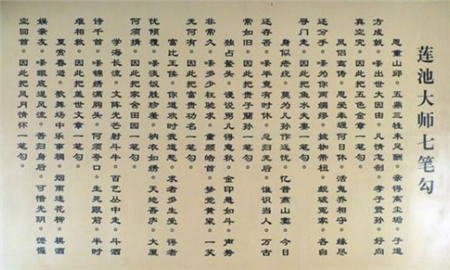 莲池大师七笔勾
恩重山丘。五鼎三牲未足酬。亲得离尘垢。子道
方成就。嗏出世大因由。凡情怎剖。孝子贤孙。好向
真空究。因此把五色金章一笔勾。
凤侣鸾俦。恩爱牵缠何日休。活鬼乔相守。缘尽
还分手。嗏为你两绸缪。披枷带杻。觑破冤家。各自
寻门走。因此把鱼水夫妻一笔勾。
身似疮疣。莫为儿孙作远忧。忆昔燕山窦。今日
还存否。嗏毕竟有时休。总归无后。谁识当人。万古
常如旧。因此把贵子兰孙一笔勾。
独占鳌头。谩说男儿得意秋。金印悬如斗。声势
非常久。嗏多少枉驰求。童颜皓首。梦觉黄粱。一笑
无何有。因此把富贵功名一笔勾。
富比王侯。你道欢时我道愁。求者多生受。得者
忧倾覆。嗏淡饭胜珍馐。衲衣如绣。天地吾庐。大厦
何须构。因此把家舍田园一笔勾。
学海长流。文阵光芒射斗牛。百艺丛中走。斗酒
诗千首。嗏锦绣满胸头。何须夸口。生死跟前。半时
难相救。因此把盖世文章一笔勾。
夏赏春游。歌舞场中乐事稠。烟雨迷花柳。棋酒
娱亲友。嗏眼底逞风流。苦归身后。可惜光阴。懡㦬
空回首。因此把风月情怀一笔勾。